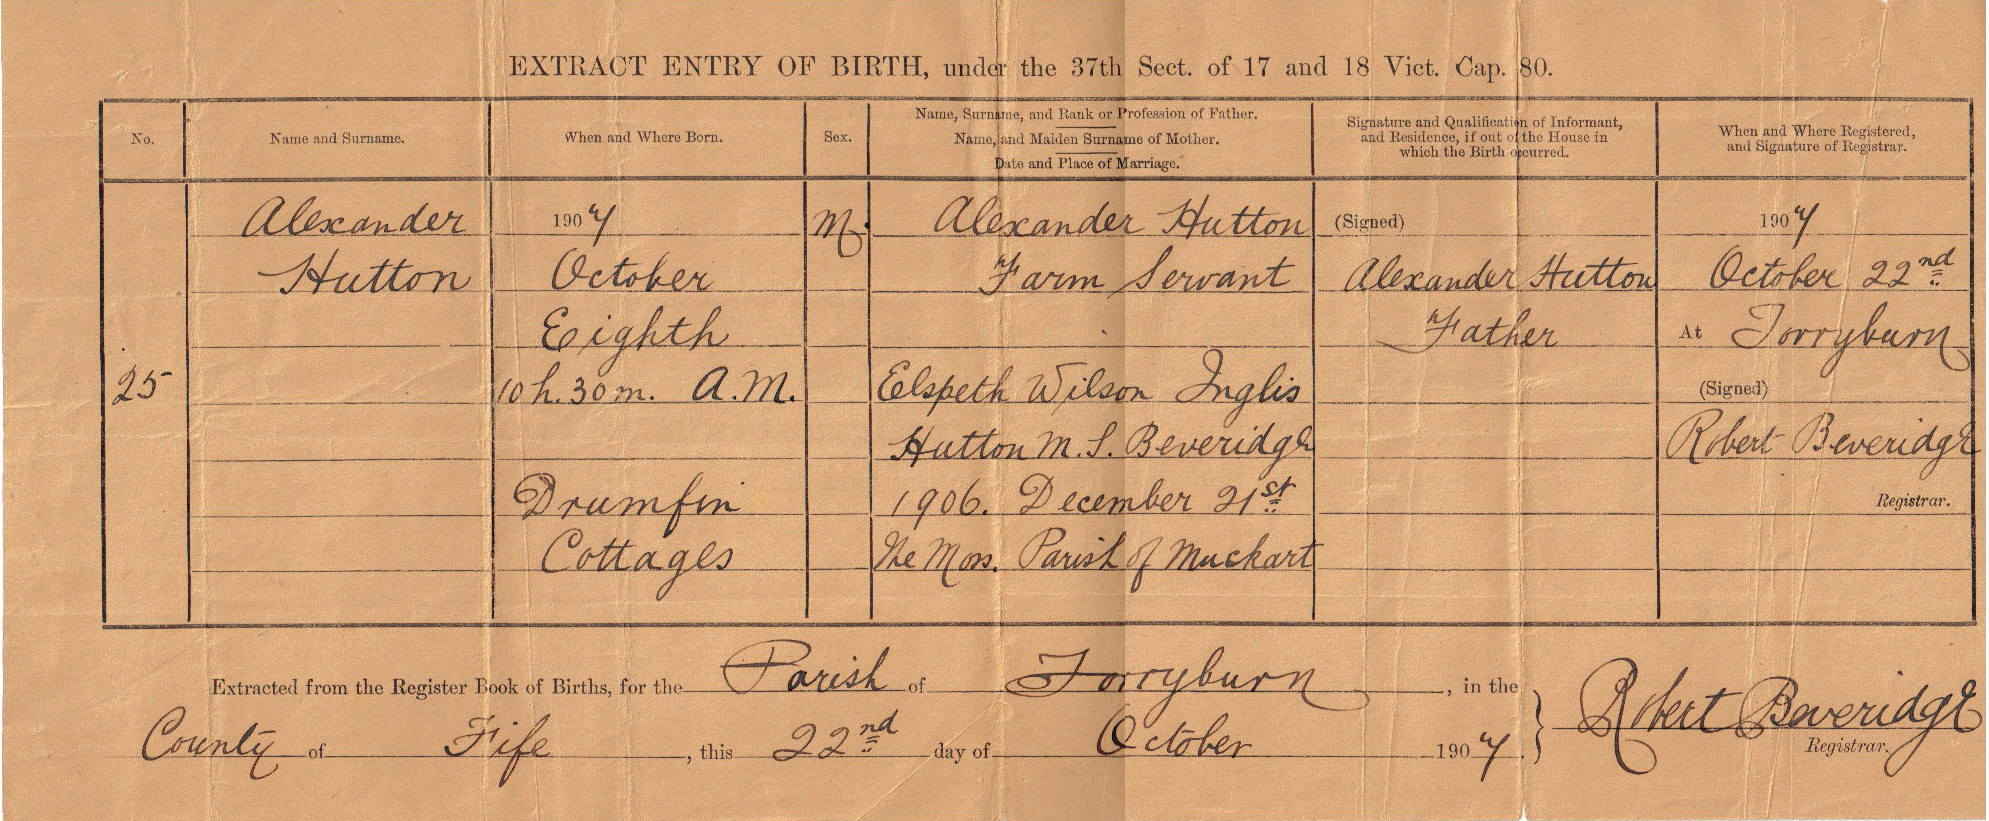 EXTRACT ENTRY OF BIRTH, under the 37th Sect. of 17 and 18 Vict. Cap. 80.
No.
Name and Surname.
When and Where Born.
Sex.
Name, Surname, and Rank or Profession of Father.
Name, and Maiden Surname of Mother.
Date and Place of Marriage.
Signature and Qualification of Informant,
and Residence, if out of the House in
which the Birth occurred.
When and Where Registered,
and Signature of Registrar.
25
Alexander
Hutton
1907
October
Eighth
10 h. 30 m. A.M.
Drumfin
Cottages
M.
Alexander Hutton
Farm Servant
Elspeth Wilson Inglis
Hutton M.S. Beveridge
1906. December 21st
The Moss. Parish of Muckart
(Signed)
Alexander Hutton
Father
1907
October 22nd
At Torryburn
(Signed)
Robert Beveridge
Registrar.
Extracted from the Register Book of Births, for the Parish of Torryburn, in the
County of Fife, this 22nd day of October 1907.
Robert Beveridge
Registrar.